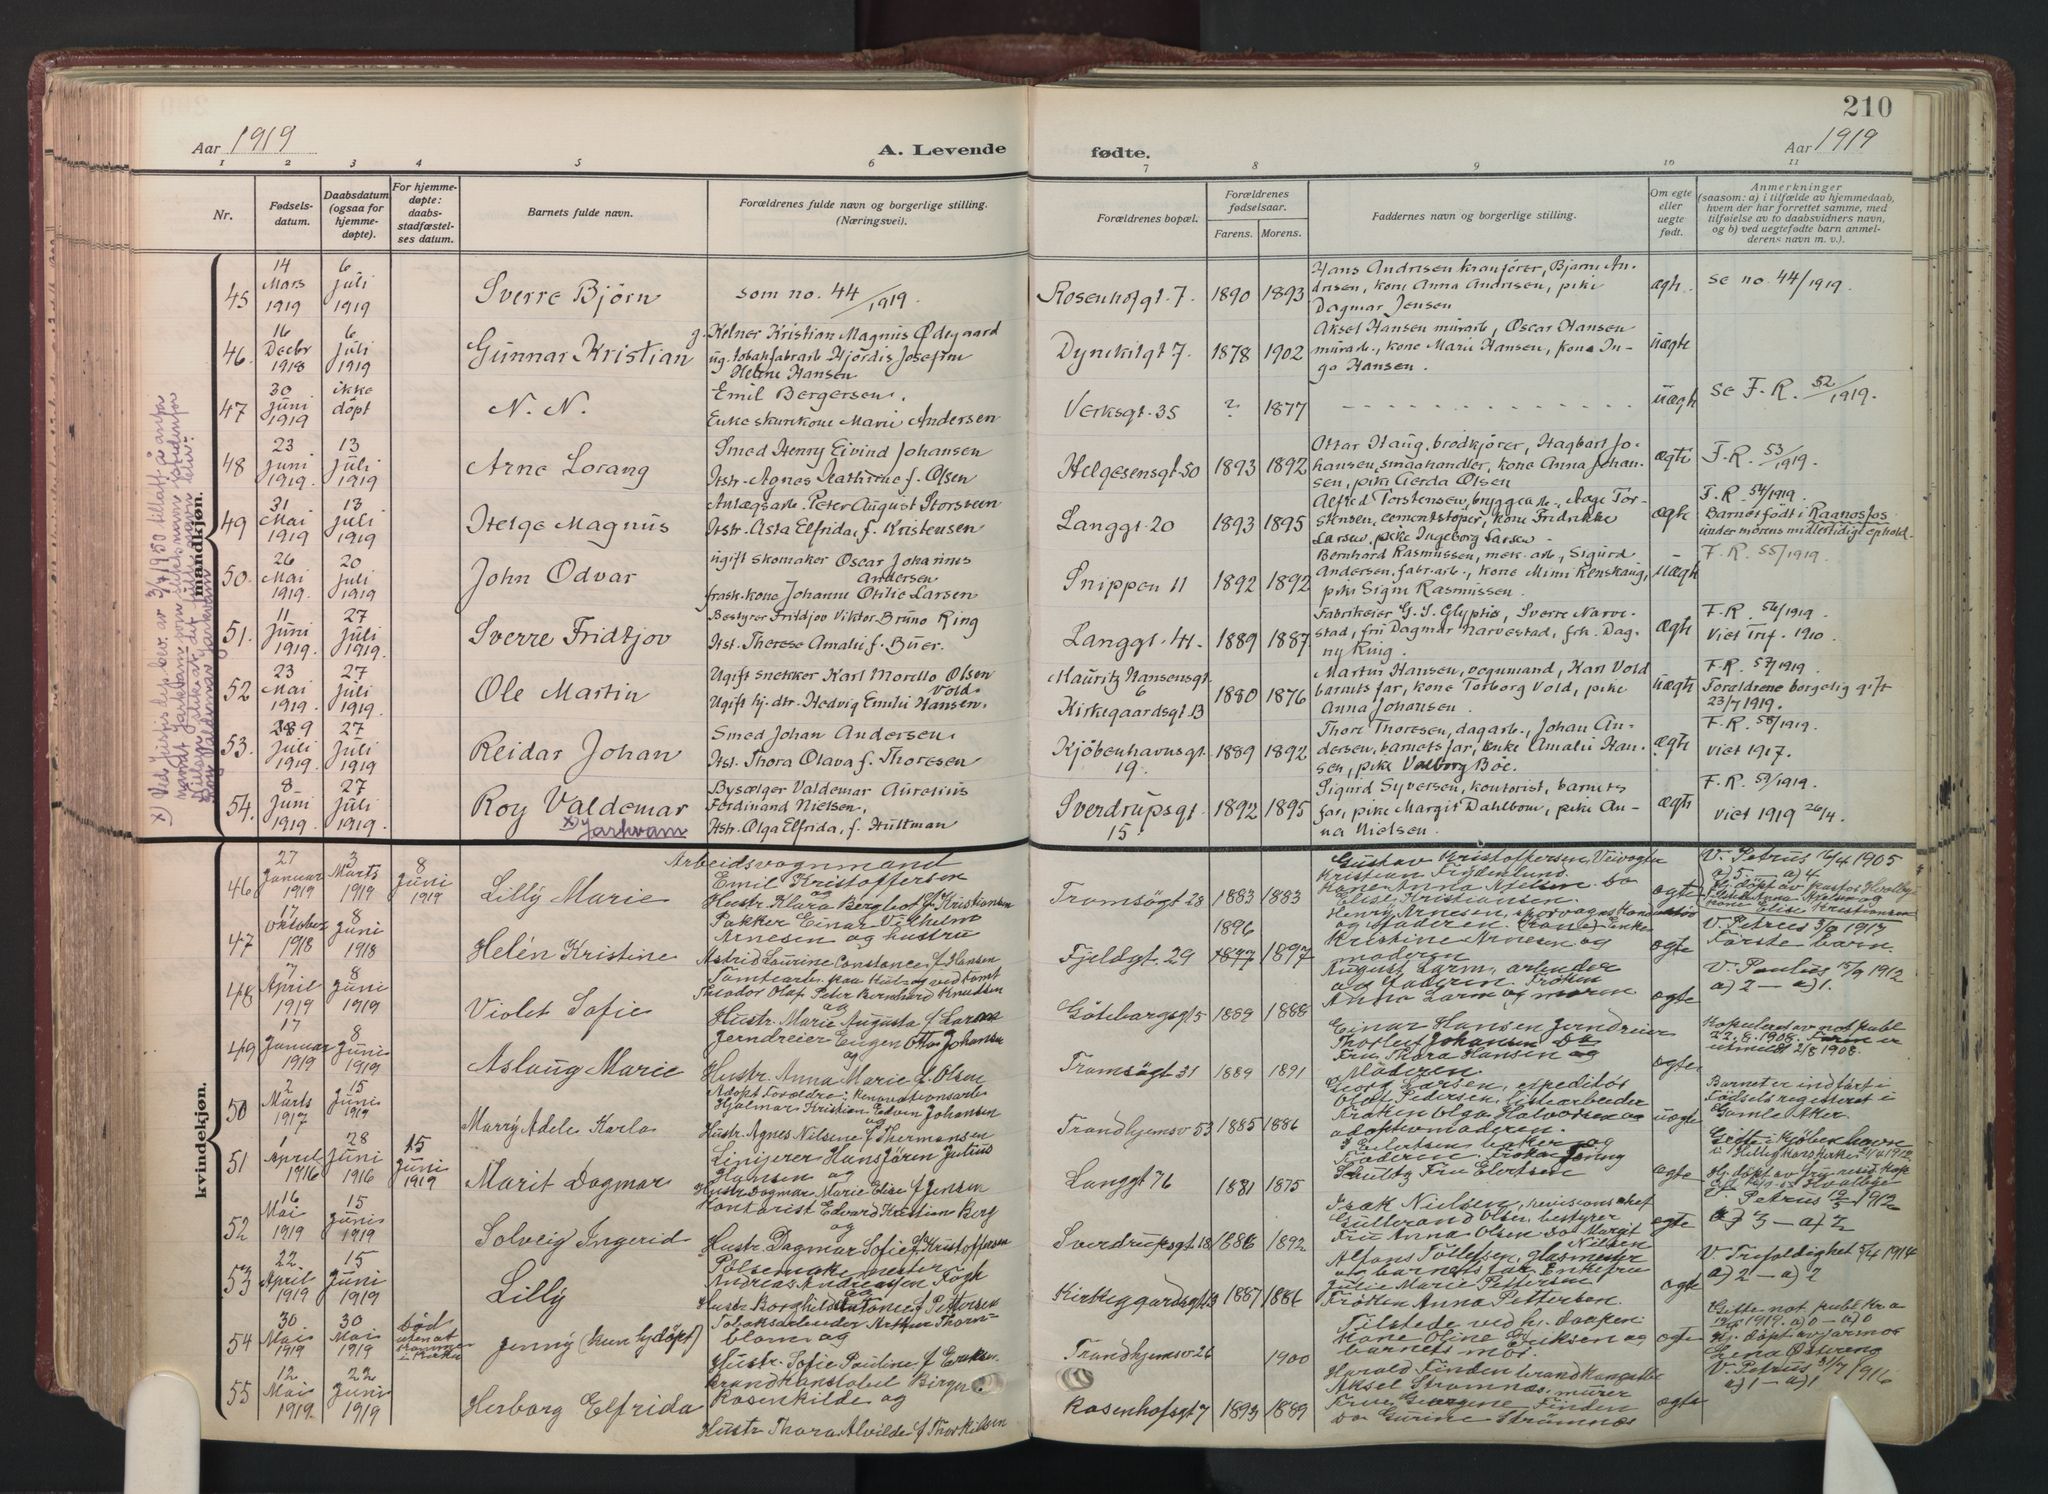 210
Aar 1919
A. Levende
fødte.
Aar 1919
1 2 3 4 5 6 7 8 9 10 11
Nr.
Fødsels-
datum.
Daabsdatum
(ogsaa for
hjemme-
døpte).
For hjemme-
døpte:
daabs-
stadfæstel-
ses datum.
Barnets fulde navn.
Forældrenes fulde navn og borgerlige stilling.
(Næringsvei).
Forældrenes bopæl.
Forældrenes
fødselsaar.
Farens. Morens.
Faddernes navn og borgerlige stilling.
Om egte
eller
uegte
født.
Anmerkninger
(saasom: a) i tilfælde av hjemmedaab,
hvem der har forrettet samme, med
tilføielse av to daabsvidners navn,
og b) ved uegtefødte barn anmel-
derens navn m. v.).
mandkjøn.
45
14 Mars 1919
6 Juli 1919
Sverre Bjørn
som no. 44/1919.
Rosenhofgt. 7.
1890 1893
Hans Andresen kranfører, Bjarne An-
dresen, kone Anna Andresen, pike
Dagmar Jensen
ægte.
se no. 44/1919.
46.
16 Decbr 1918
6 Juli 1919
Gunnar Kristian
g. Kelner Kristian Magnus Ødegaard
ug. tobakfabrarb. Hjørdis Josefine
Helene Hansen
Dynekilgt 7.
1878 1902
Aksel Hansen murarb, Oscar Hansen
murarb., kone Marie Hansen, kone In-
ga Hansen.
uægte
47
30 Juni 1919
ikke døpt
N. N.
Emil Bergersen.
Enke skurekone Marie Andersen
Verksgt. 35
? 1877
uægte
se F. R. 52/1919.
48
23 Juni 1919.
13 Juli 1919
Arne Lorang
Smed Henry Eivind Johansen
Hstr. Agnes Kathrine f. Olsen
Helgesensgt. 50
1893 1892
Ottar Haug, brødkjører, Hagbart Jo-
hansen, smaahandler, kone Anna Johan-
sen, pike Gerda Olsen
ægte
F. R. 53/1919.
49
31 Mai 1919
13 Juli 1919
Helge Magnus
Anlægsarb. Peter August Thorsteen
Hstr. Asta Elfrida, f. Kristensen
Langgt. 20
1893 1895
Alfred Torstensen, bryggearb., Aage Tor-
stensen, cementstøper, kone Fridrikke
Larsen, pike Ingeborg Larsen
ægte
F. R. 54/1919.
Barnet født i Raanasfos
under morens midlertidige ophold.
50.
26 Mai 1919.
20 Juli 1919
John Odvar
ugift skomaker Oscar Johannes
Andersen
frask. kone Johanne Otilie Larsen
Snippen 11
1892 1892
Bernhard Rasmussen, mek. arb, Sigurd
Andersen, fabr. arb., kone Minni Kenskaug,
pike Signe Rasmussen.
uægte
F. R. 55/1919.
51.
11 Juni 1919.
27 Juli 1919.
Sverre Fridtjov
Bestyrer Fridtjov Viktor Bruno Ring
Hst. Therese Amalie f. Buer.
Langgt. 41.
1889 1887
Fabrikeier G. S. Glyptis, Sverre Narve-
stad, fru Dagmar Narvestad, frk. Dag-
ny Ring.
ægte
F. R. 56/1919.
Viet Trf. 1910.
52
23 Mai 1919.
27 Juli 1919.
Ole Martin
Ugift snekker Karl Morello Olsen
Vold.
Ugift hj. dtr. Hedvig Emilie Hansen.
Mauritz Hansensgt.
6
Kirkegaardsgt. 13
1880 1876
Martin Hansen, vognmand, Karl Vold
barnets far, kone Torborg Vold, pike
Anna Johansen.
uægte
F. R. 57/1919.
Forældrene borgelig gift
23/7 1919.
53.
Juli 1919
27 Juli 1919
Reidar Johan
Smed Johan Andersen.
Hst. Thora Olava f. Thoresen
Kjøbenhavnsgt
19.
1889 1892
Thore Thoresen, dagarb., Johan An-
dersen, barnets far, enke Amalie Han-
sen, pike Valborg Bøe.
ægte
F. R. 58/1919.
viet 1917.
54.
8 Juni 1919.
27 Juli 1919.
Roy Valdemar
x) Jarkvam
Bysælger Valdemar Aurelius
Ferdinand Nielsen,
Hstr. Olga Elfrida, f. Hultman
Sverdrupsgt.
15
1892 1895
Sigurd Syversen, kontorist, barnets
far, pike Margit Dahlbom, pike An-
na Nielsen.
ægte
F. R. 59/1919.
viet 1919 26/4.
kvindekjøn.
46
27 Januar 1919
3 Marts 1919
8 Juni 1919
Lilly Marie
Arbeidsvognmand
Emil Kristoffersen
og
Hustr. Klara Bergliot f. Kristiansen
Tromsøgt 28
1883 1883
Gustav Kristoffersen, Veivogter
Elise Kristiansen.
ægte
V. Petrus 16/4 1905
a) 5 — a) 4.
47
17 Oktober 1918
8 Juni 1918
Helén Kristine
Pakker Einar Vilhelm
Arnesen og hustru
Astrid Laurine Constance f. Hansen
Fjeldgt. 29
1896
1877 1897
Kristine Arnesen og
moderen
ægte
Første barn.
48
7 April 1919
8 Juni 1919
Violet Sofie
Theodor Olaf Peter Bernhard Knudsen
og
Hustr. Marie Augusta f. Larm
Göteborgsgt 5
1889 1888
August Larm, arbeider
og faderen Frøken
Anna Larm og moren
ægte
V. Paulus 15/9 1912
a) 2 — a) 1.
49
17 Januar 1919
8 Juni 1919
Aslaug Marie
Jerndreier Eugen Otto Johansen
og
Hustr. Anna Marie f. Olsen
Tromsøgt 31
1889 1891
Einar Hansen Jerndreier
Thorleif Johansen Do
Fru Thora Hansen og
Moderen.
ægte
50
2 Marts 1917
15 Juni 1919
Marry Adele Karla
Adopt. Foreldre: Renovationsarb.
Hjalmar Kristian Edvin Johansen
og
Hustr. Agnes Nilsene f. Thermansen
Trondhjemsv 53
1885 1886
Georg Larsen, espeditør
Olaf Pedersen, listearbeider
Frøken Olga Halvorsen og
adoptivmoderen.
uægte
Barnet er indført i
Fødselsregisteret i
Gamle Aker.
51
1 April 1916
28 Juni 1916
15 Juni 1919
Marit Dagmar
Linjerer Hans Jören Julius
Hansen og
Hustr. Dagmar Marie Elise f. Jensen
Langgt 76
1881 1875
Schultz Fru Eilertsen
ægte
52
16 Mai 1919
15 Juni 1919
Solveig Ingerid
Kontorist Edvard Kristian Berg
og
Hustr. Dagmar Sofie f. Kristoffersen
Sverdrupsgt 18
1886 1892
Isak Nielsen, revisionschef
Gulbrand Olsen, bestyrer
Fru Anna Olsen Do Margit
Nielsen
ægte
a) 3 — a) 2
53
22 April 1919
15 Juni 1919
Lilly
Pølsemakermester
Andreas Andreassen Fogh
og
Hustr. Borghild Antonie f. Pettersen
Kirkeggardsgt 13
1887 1886
Alfons Tollefsen, glasmester
og barnets far. Enkefru
Julie Marie Pettersen
Frøken Anna Pettersen.
ægte
V. Trefoldighet 5/4 1914
a) 2 — a) 2
54
30 Mai 1919
30 Mai 1919
død
uten at
Jenny (kun hj. døpt)
Tobaksarbeider Arthur Thorn-
blom og
Hustr. Sofie Pauline f. Eriksen
Trondhjemsv 26
1900
Tilstede ved hj. daapen:
Kone Oline Eriksen og
barnets mor.
ægte
Hj. døpt av jarmor
55
12 Mai 1919.
22 Juni 1919
Herborg Elfrida
Brandkonstabel Birger
Rosenkilde og
Hustr. Thora Alvilde f. Thorkildsen
Rosenhofsgt 7
1893 1889
Harald Finden brandkonstabel
Aksel Strømnæs, murer
Fru Georgine Finden
Do Gurine Strømnæs
ægte
V. Petrus 31/7 1916
a) 1 — a) 1
x) Ved Justisdep. bev. av 3/7 1950 tillatt å anta
navnet Jarkvam